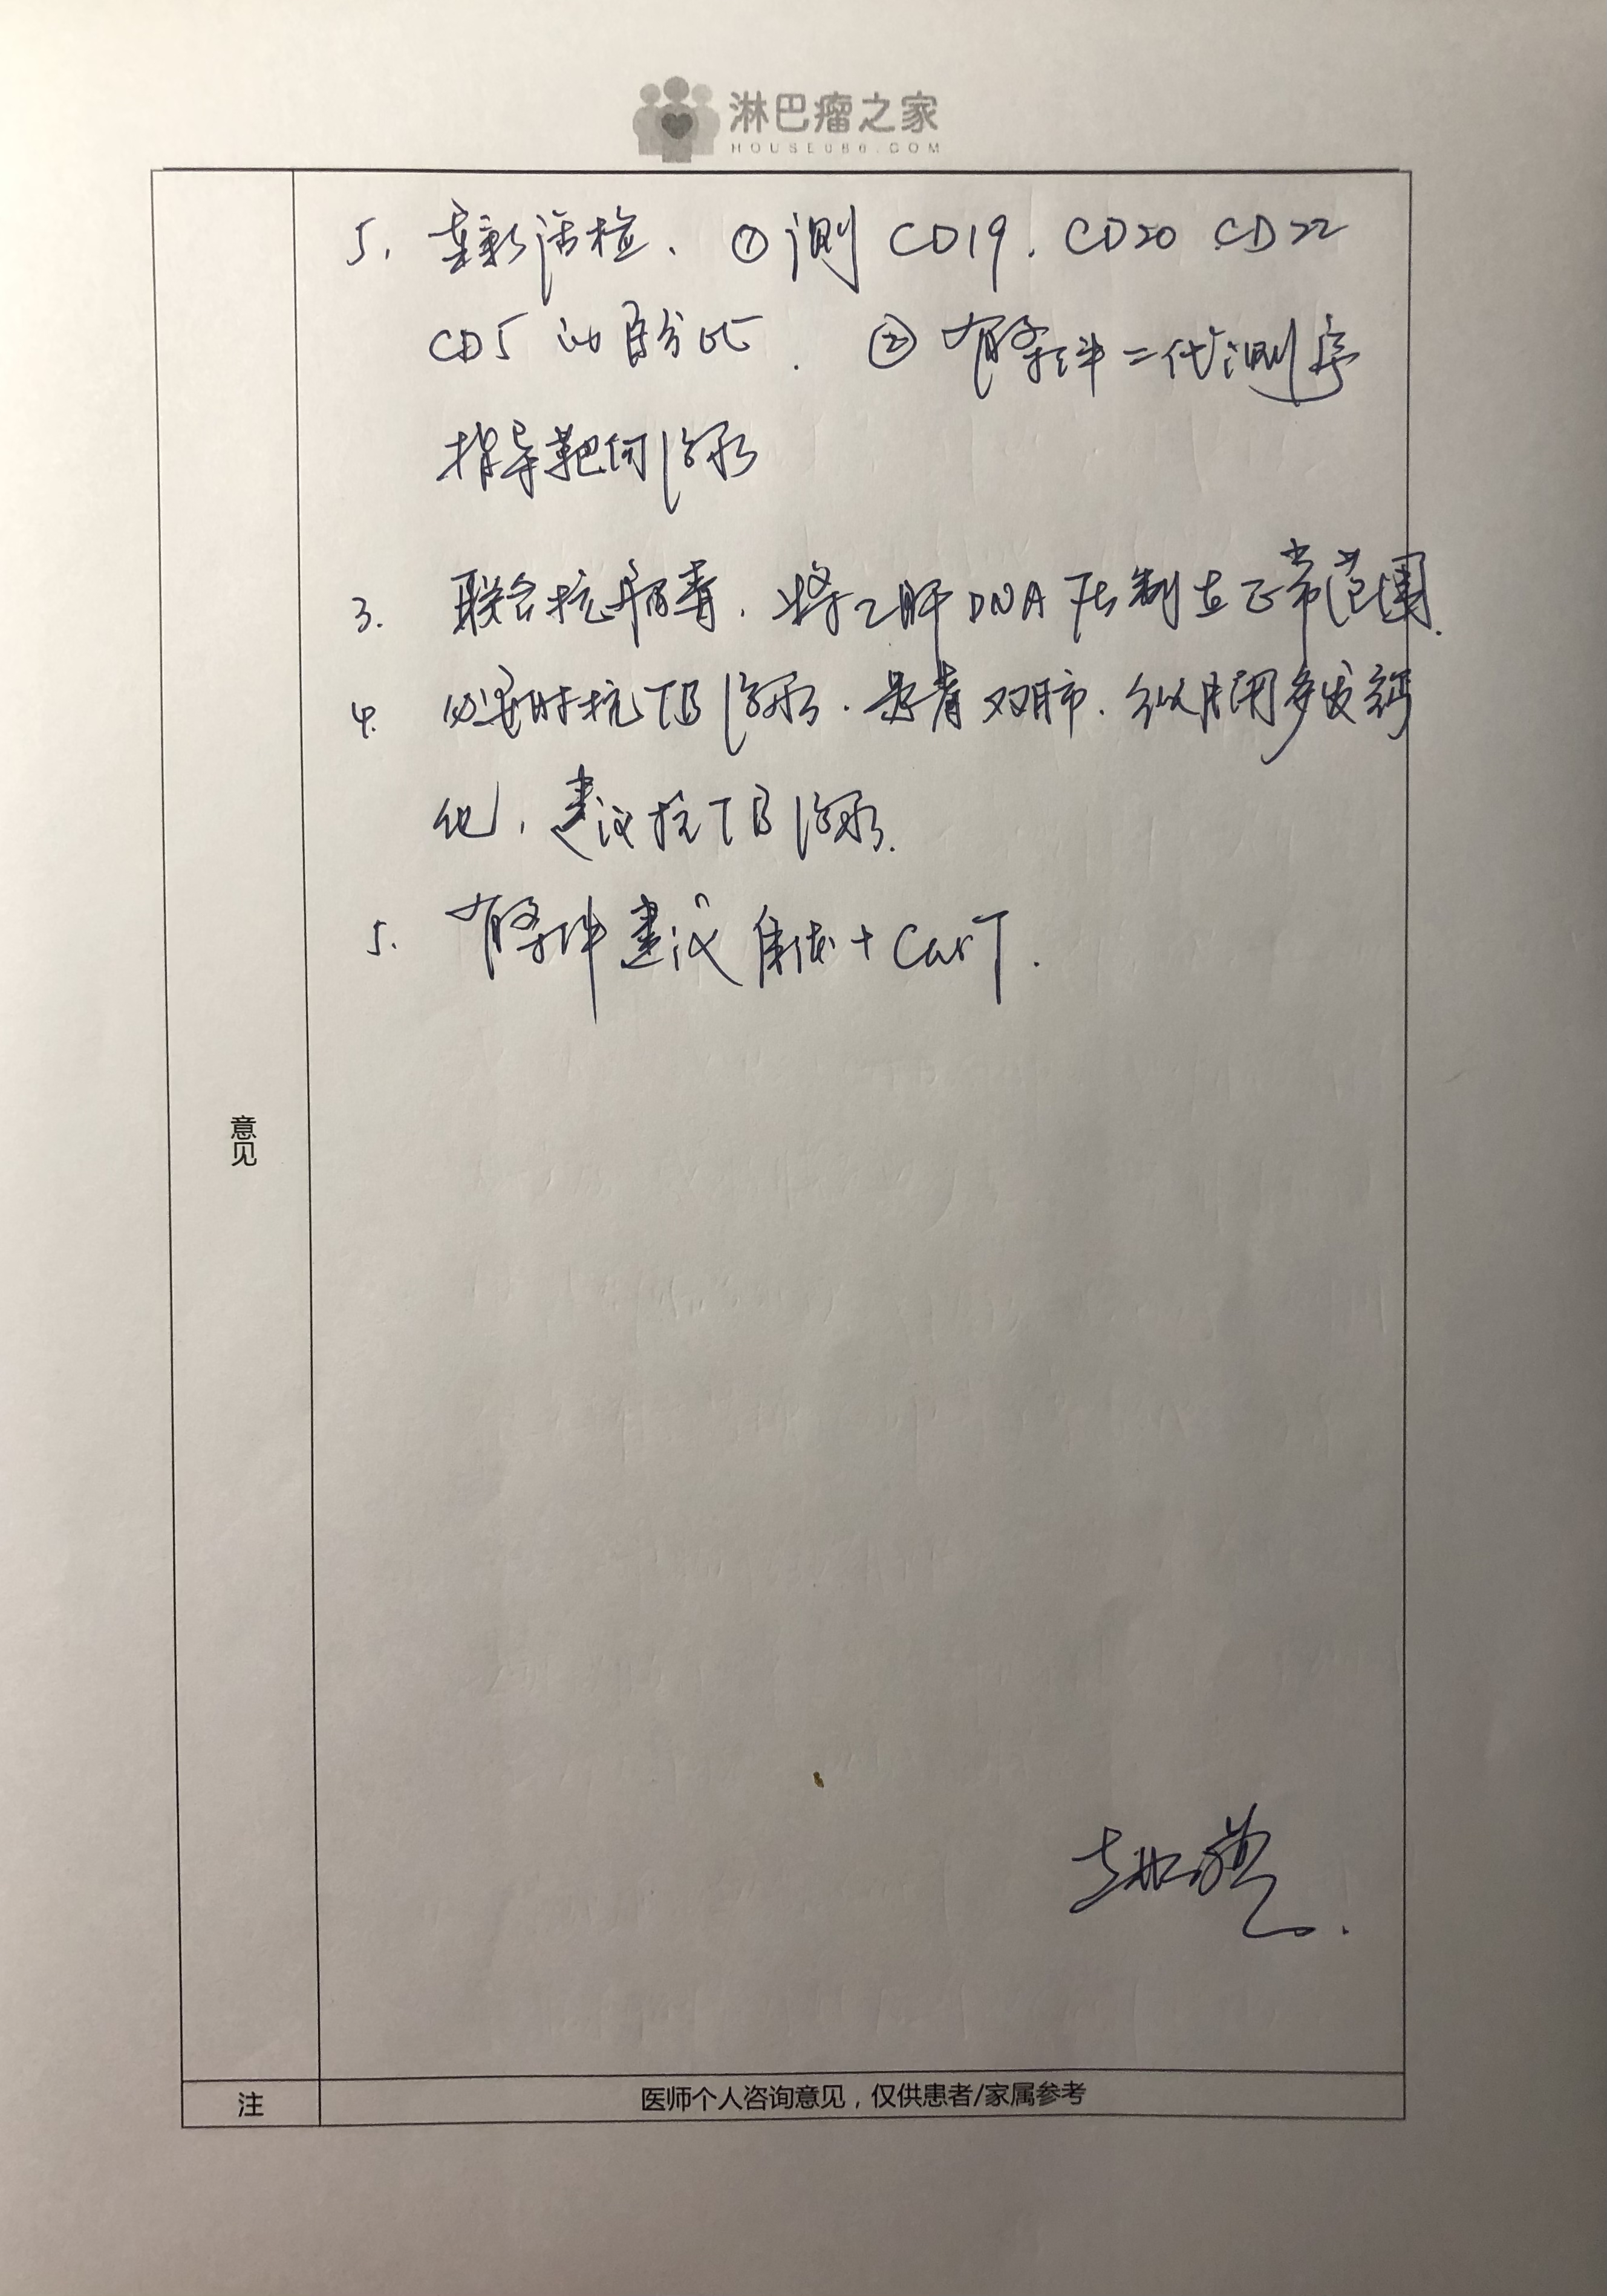 淋巴瘤之家
HOUSE086.COM
5. 重新活检、①测 CD19. CD20 CD22
CD5 的百分比. ②有条件二代测序
指导靶向治疗
3. 联合抗病毒. 将乙肝DNA控制在正常范围.
4. 必要时抗TB治疗. 患者双肺. 纵膈多发钙
化, 建议抗TB治疗.
5. 有条件建议自体+CarT.
意见
注 医师个人咨询意见，仅供患者/家属参考